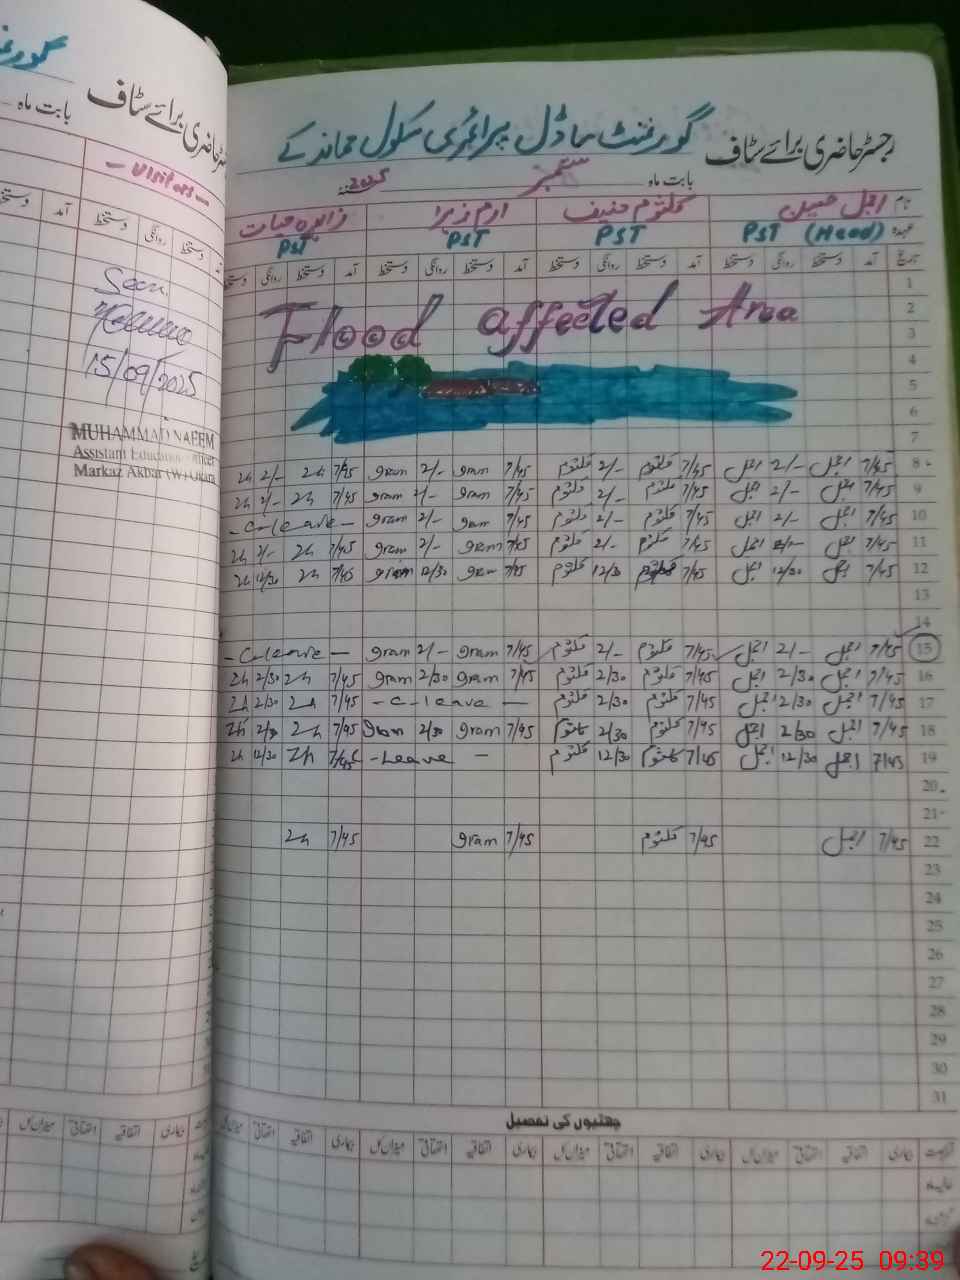 رجسٹر حاضری برائے سٹاف گورنمنٹ ماڈل پرائمری سکول
بابت ماہ ستمبر 2025
نام اجمل حسین کلثوم حنیف ارم زہرا زاہدہ حیات
عہدہ PST (Head) PST PST PST
تاریخ آمد دستخط روانگی دستخط آمد دستخط روانگی دستخط آمد دستخط روانگی دستخط آمد دستخط روانگی دستخط
1
2
3
Flood affected Area
4
5
6
7
8 7/45 اجمل 2/- اجمل 7/45 کلثوم 2/- کلثوم 7/45 Iram 2/- Iram 7/45 2/-
9 7/45 اجمل 2/- اجمل 7/45 کلثوم 2/- کلثوم 7/45 Iram 2/- Iram 7/45 2/-
10 7/45 اجمل 2/- اجمل 7/45 کلثوم 2/- کلثوم 7/45 Iram 2/- Iram - C-leave -
11 7/45 اجمل 2/- اجمل 7/45 کلثوم 2/- کلثوم 7/45 Iram 2/- Iram 7/45 2/-
12 7/45 اجمل 12/30 اجمل 7/45 کلثوم 12/30 کلثوم 7/45 Iram 12/30 Iram 7/45 12/30
13
14
15 7/45 اجمل 2/- اجمل 7/45 کلثوم 2/- کلثوم 7/45 Iram 2/- Iram - C-leave -
16 7/45 اجمل 2/30 اجمل 7/45 کلثوم 2/30 کلثوم 7/45 Iram 2/30 Iram 7/45 2/30
17 7/45 اجمل 2/30 اجمل 7/45 کلثوم 2/30 کلثوم - C-leave - 7/45 2/30
18 7/45 اجمل 2/30 اجمل 7/45 کلثوم 2/30 کلثوم 7/45 Iram 2/30 Iram 7/45 2/30
19 7/45 اجمل 12/30 اجمل 7/45 کلثوم 12/30 کلثوم - Leave - 7/45 12/30
20
21
22 7/45 اجمل 7/45 کلثوم 7/45 Iram 7/45
23
24
25
26
27
28
29
30
31
چھٹیوں کی تفصیل
بیماری اتفاقیہ استحقاقی میزان کل بیماری اتفاقیہ استحقاقی میزان کل بیماری اتفاقیہ استحقاقی میزان کل بیماری اتفاقیہ استحقاقی میزان کل
برائے سٹاف
بابت ماہ
- Visitors -
آمد دستخط روانگی دستخط
Seen
15/09/2025
MUHAMMAD NAEEM
Assistant Education Officer
Markaz Akbar (W) Okara
22-09-25 09:39